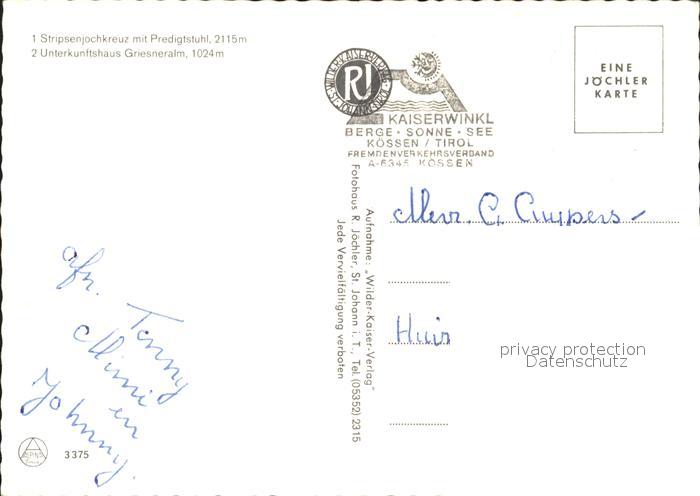 1 Stripsenjochkreuz mit Predigtstuhl, 2115m
2 Unterkunftshaus Griesneralm, 1024m
EINE
JÖCHLER
KARTE
RJ
KAISERWINKL
BERGE · SONNE · SEE
KÖSSEN / TIROL
FREMDENVERKEHRSVERBAND
A-6345 KÖSSEN
Aufnahme: „Wilder-Kaiser-Verlag"
Fotohaus R. Jöchler, St. Johann i. T., Tel. (05352) 2315
Jede Vervielfältigung verboten
Mevr. C. Cuypers -
Huis
afz. Tanny
Mimi en
Johnny.
3375
privacy protection
Datenschutz